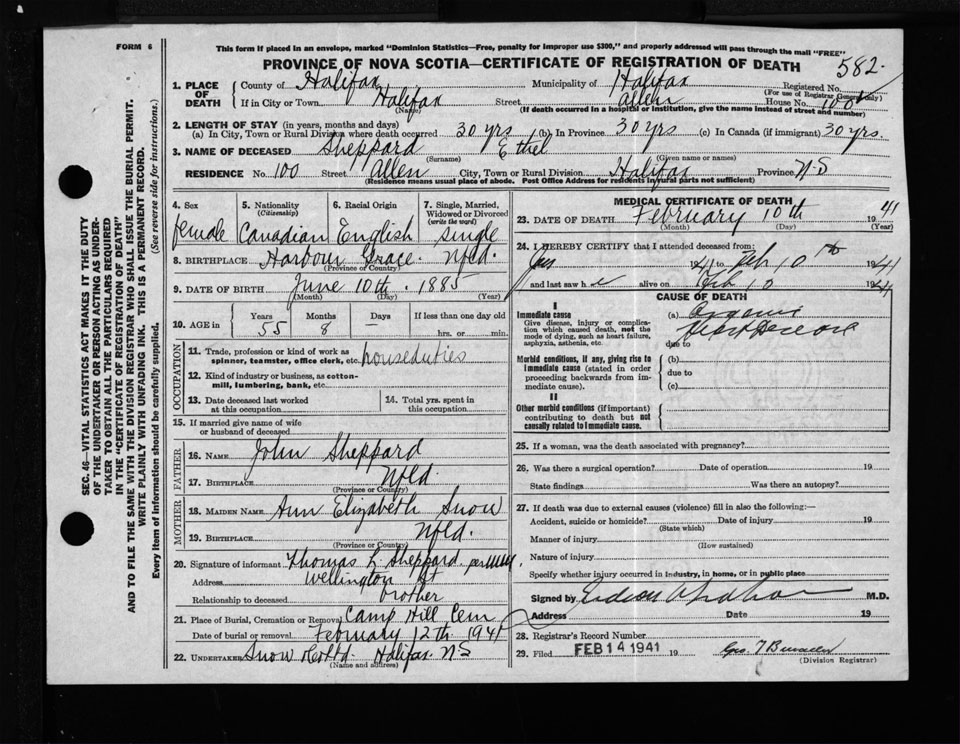 FORM 6
This form if placed in an envelope, marked "Dominion Statistics—Free, penalty for improper use $300," and properly addressed will pass through the mail "FREE"
PROVINCE OF NOVA SCOTIA—CERTIFICATE OF REGISTRATION OF DEATH
582
1. PLACE OF DEATH
County of Halifax Municipality of Halifax Registered No.
(For use of Registrar General only)
If in City or Town Halifax Street Allen House No. 100
(Name) (If death occurred in a hospital or institution, give the name instead of street and number)
2. LENGTH OF STAY (in years, months and days)
(a) In City, Town or Rural Division where death occurred 30 yrs (b) In Province 30 yrs (c) In Canada (if immigrant) 30 yrs.
3. NAME OF DECEASED Sheppard Ethel
(Surname) (Given name or names)
RESIDENCE No. 100 Street Allen City, Town or Rural Division Halifax Province N-S
(Residence means usual place of abode. Post Office Address for residents in rural parts not sufficient)
4. Sex 5. Nationality (Citizenship) 6. Racial Origin 7. Single, Married, Widowed or Divorced (write the word)
female Canadian English single
8. BIRTHPLACE Harbour Grace Nfld.
(Province or Country)
9. DATE OF BIRTH June 10th 1885
(Month) (Day) (Year)
10. AGE in Years Months Days If less than one day old
55 8 — hrs. or min.
OCCUPATION
11. Trade, profession or kind of work as spinner, teamster, office clerk, etc. houseduties
12. Kind of industry or business, as cotton-mill, lumbering, bank, etc.
13. Date deceased last worked at this occupation
14. Total yrs. spent in this occupation
15. If married give name of wife or husband of deceased
FATHER
16. NAME John Sheppard
17. BIRTHPLACE Nfld
(Province or Country)
MOTHER
18. MAIDEN NAME Ann Elizabeth Snow
19. BIRTHPLACE Nfld.
(Province or Country)
20. Signature of informant Thomas L. Sheppard per
Address Wellington St
Relationship to deceased brother
21. Place of Burial, Cremation or Removal Camp Hill Cem
Date of burial or removal February 12th 1941
22. UNDERTAKER Snow & Co Ltd. Halifax NS
(Name and address)
MEDICAL CERTIFICATE OF DEATH
23. DATE OF DEATH February 10th 1941
(Month) (Day) (Year)
24. I HEREBY CERTIFY that I attended deceased from:
1941 to Feb 10th 1941
and last saw h e alive on Feb 10 1941
CAUSE OF DEATH
I
Immediate cause
Give disease, injury or complication which caused death, not the mode of dying, such as heart failure, asphyxia, asthenia, etc.
(a) Organic
Heart Disease
due to
Morbid conditions, if any, giving rise to immediate cause (stated in order proceeding backwards from immediate cause).
(b)
due to
(c)
II
Other morbid conditions (if important) contributing to death but not causally related to immediate cause.
25. If a woman, was the death associated with pregnancy?
26. Was there a surgical operation? Date of operation 19
State findings Was there an autopsy?
27. If death was due to external causes (violence) fill in also the following:—
Accident, suicide or homicide? Date of injury 19
(State which)
Manner of injury
(How sustained)
Nature of injury
Specify whether injury occurred in industry, in home, or in public place
Signed by M.D.
Address Date 19
28. Registrar's Record Number
29. Filed FEB 14 1941 19
(Division Registrar)
SEC. 46—VITAL STATISTICS ACT MAKES IT THE DUTY
OF THE UNDERTAKER OR PERSON ACTING AS UNDER-
TAKER TO OBTAIN ALL THE PARTICULARS REQUIRED
IN THE "CERTIFICATE OF REGISTRATION OF DEATH"
AND TO FILE THE SAME WITH THE DIVISION REGISTRAR WHO SHALL ISSUE THE BURIAL PERMIT.
WRITE PLAINLY WITH UNFADING INK. THIS IS A PERMANENT RECORD.
Every item of Information should be carefully supplied. (See reverse side for instructions.)